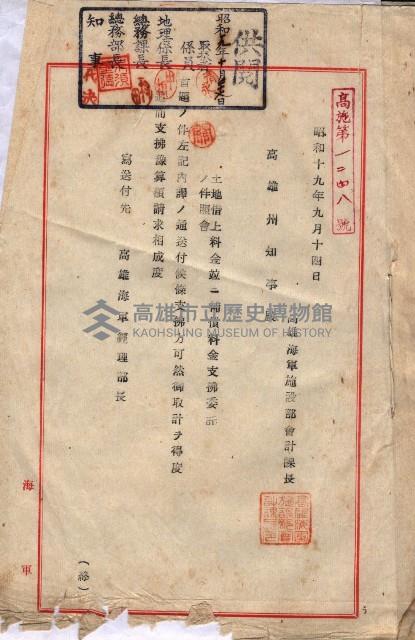 高施第一二四八號
昭和十九年九月十四日
高雄海軍施設部會計課長
高雄州知事殿
土地借上料金竝ニ補償料金支拂委託
ノ件照會
首題ノ件左記內譯ノ通送付候條支拂方可然御取計ヲ得度
追而支拂豫算額請求相成度
寫送付先 高雄海軍經理部長
(終)
海軍
供閱
昭和
係員
地理係長
總務課長
總務部長
知事
代決
高雄市立歷史博物館
KAOHSIUNG MUSEUM OF HISTORY